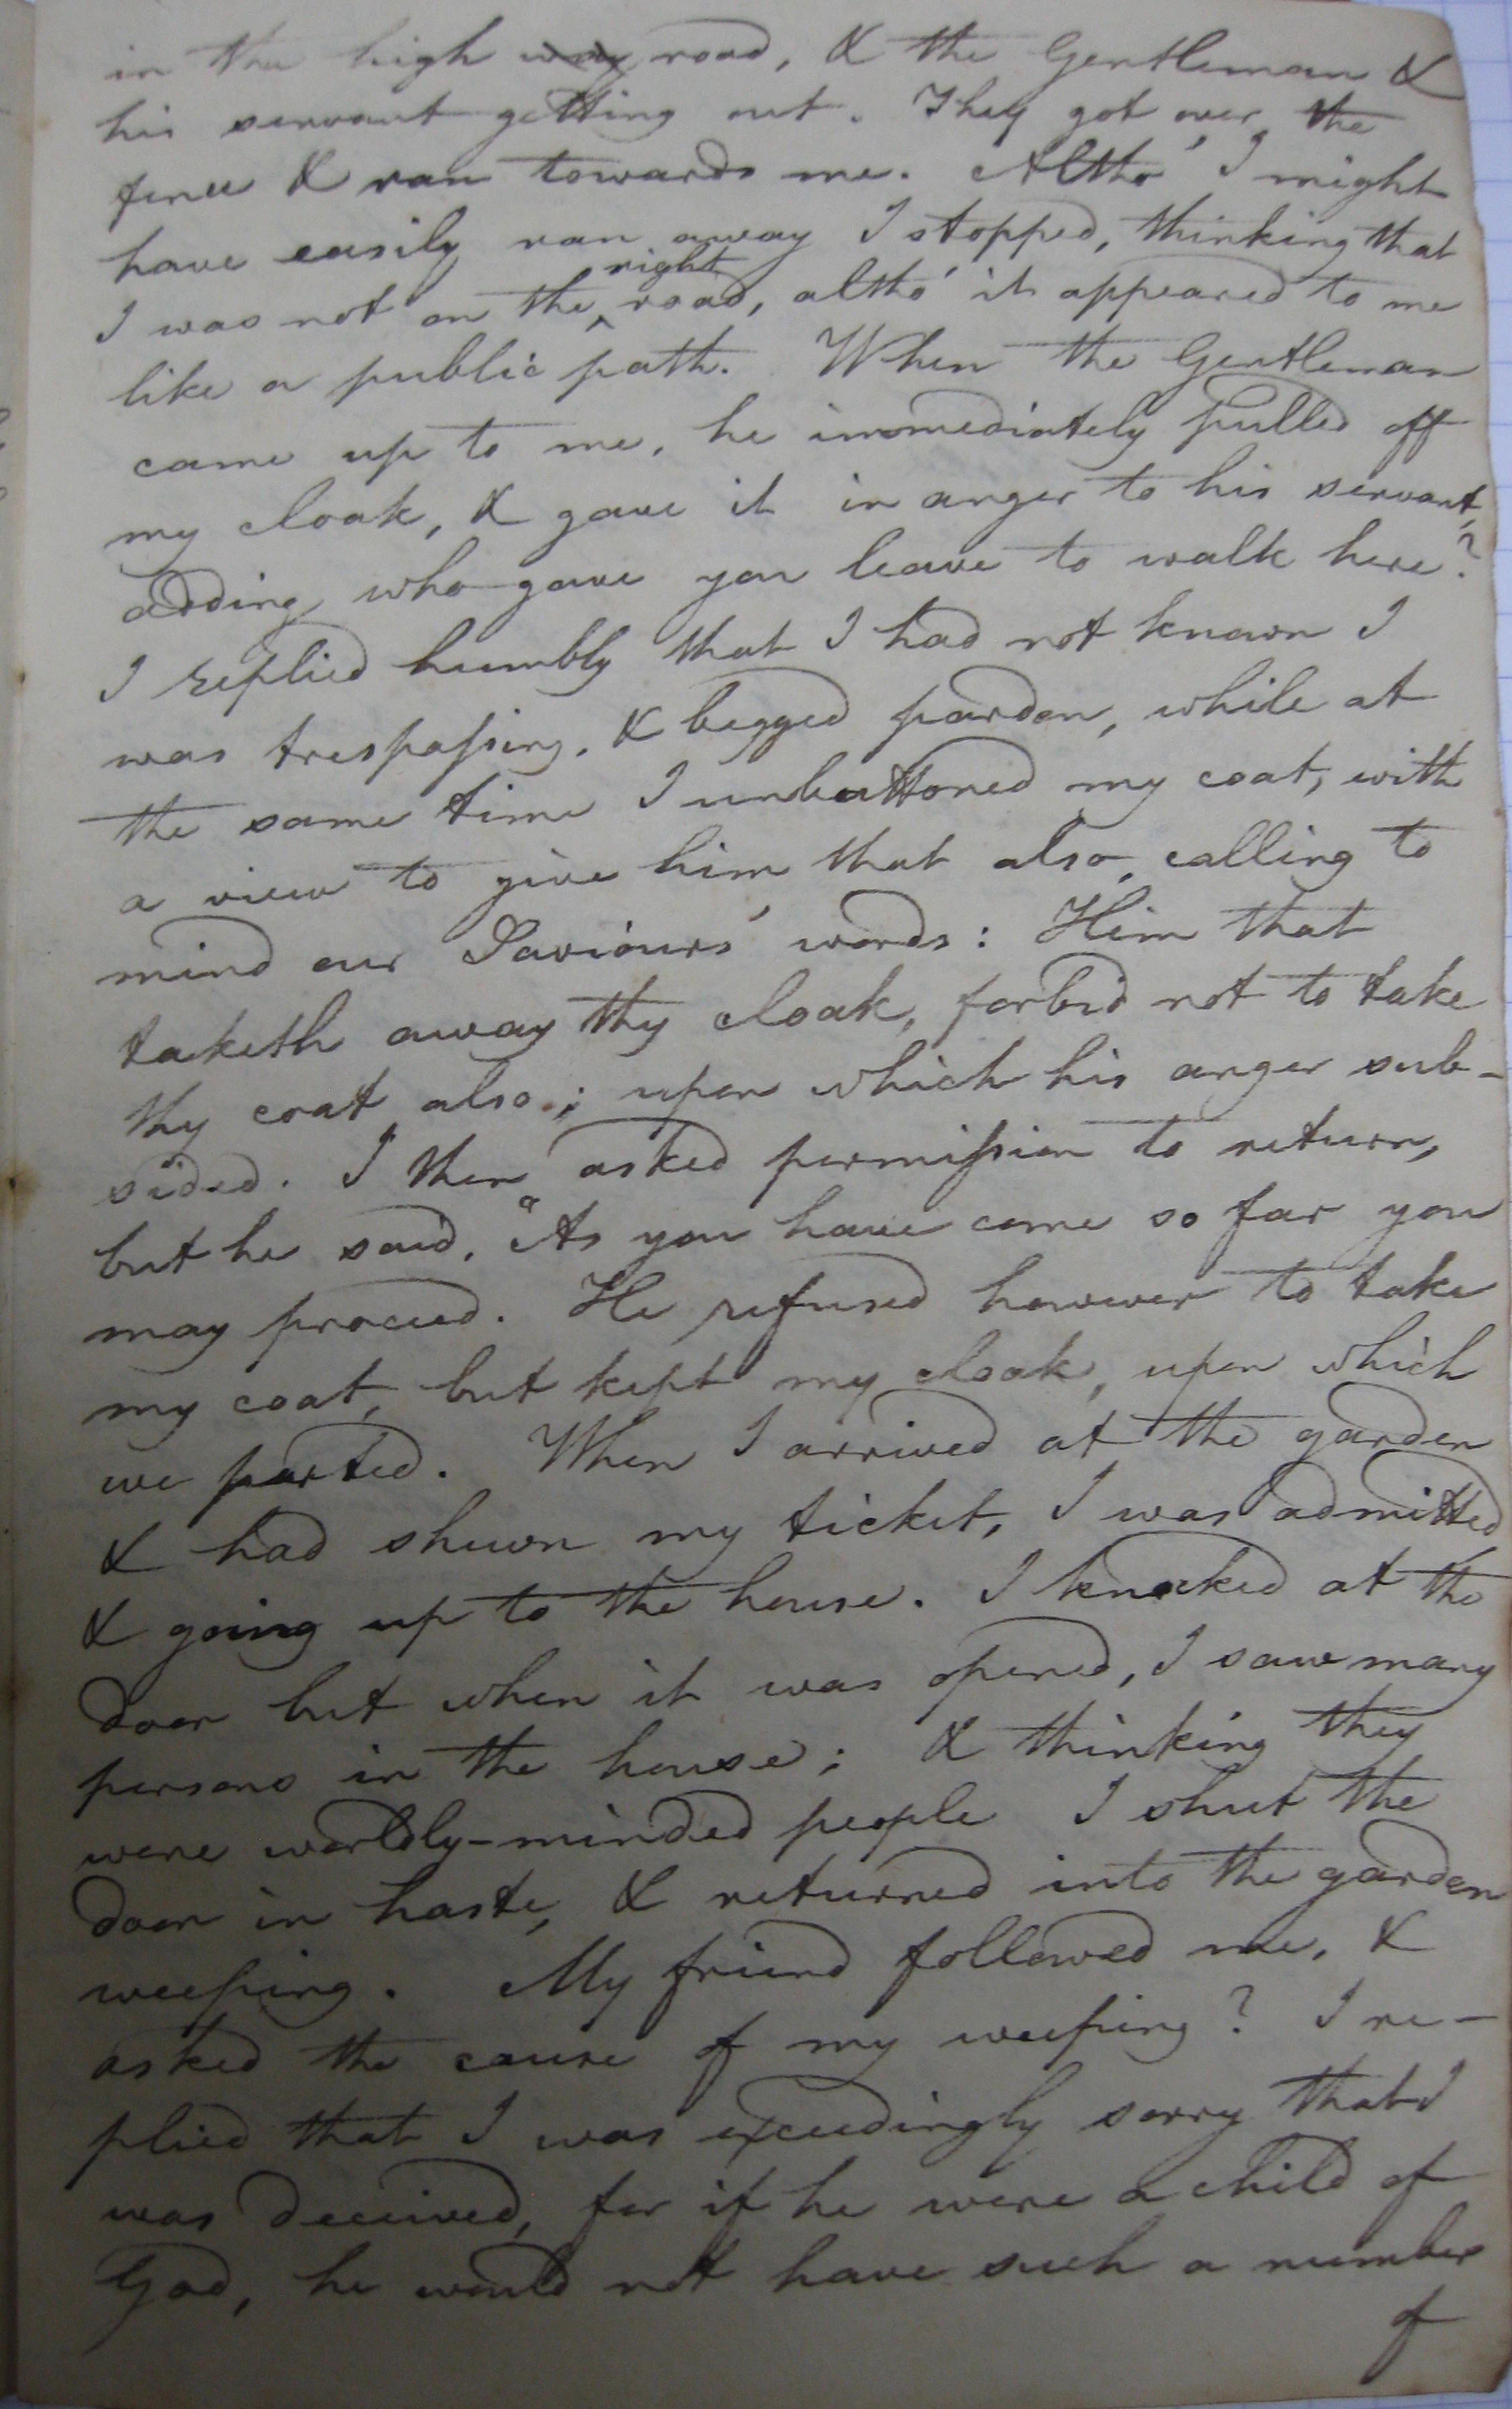 in the high way road, & the Gentleman &
his servant getting out. They got over the
fence & ran towards me. Altho' I might
have easily ran away I stopped, thinking that
I was not on the right road, altho' it appeared to me
like a public path. When the Gentleman
came up to me, he immediately pulled off
my cloak, & gave it in anger to his servant,
adding, who gave you leave to walk here?
I replied humbly that I had not known I
was trespaſsing, & begged pardon, while at
the same time I unbuttoned my coat, with
a view to give him that also, calling to
mind our Saviours' words: Him that
taketh away thy cloak, forbid not to take
thy coat also; upon which his anger sub-
sided. I then asked permiſsion to return,
but he said, "As you have come so far you
may proceed. He refused however to take
my coat, but kept my cloak, upon which
we parted. When I arrived at the garden
& had shewn my ticket, I was admitted
& going up to the house. I knocked at the
door but when it was opened, I saw many
persons in the house; & thinking they
were worldly-minded people I shut the
door in haste, & returned into the garden
weeping. My friend followed me, &
asked the cause of my weeping? I re-
plied that I was exceedingly sorry that I
was deceived, for if he were a child of
God, he would not have such a number
of